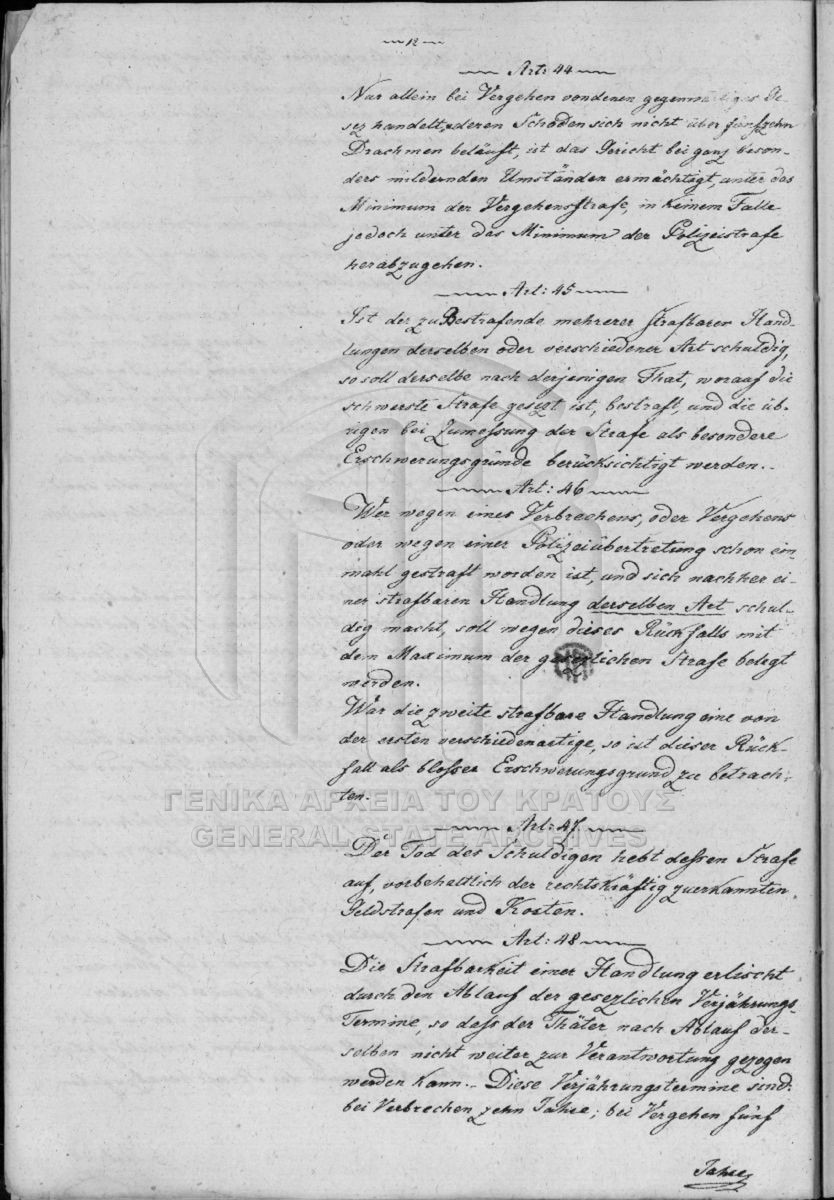 12
Art: 44
Nur allein bei Vergehen von denen gegenwärtiges Ge-
sez handelt, deren Schaden sich nicht über fünfzehn
Drachmen beläuft, ist das Gericht bei ganz beson-
ders mildernden Umständen ermächtigt, unter das
Minimum der Vergehensstrafe, in keinem Falle
jedoch unter das Minimum der Polizeistrafe
herabzugehen.
Art: 45
Ist der zu Bestrafende mehrerer strafbarer Hand-
lungen derselben oder verschiedener Art schuldig,
so soll derselbe nach derjenigen That, worauf die
schwerste Strafe gesezt ist, bestraft, und die üb-
rigen bei Zumessung der Strafe als besondere
Erschwerungsgründe berücksichtigt werden.
Art: 46
Wer wegen eines Verbrechens, oder Vergehens
oder wegen einer Polizeiübertretung schon ein-
mahl gestraft worden ist, und sich nachher ei-
ner strafbaren Handlung derselben Art schul-
dig macht, soll wegen dieses Rückfalls mit
dem Maximum der gesezlichen Strafe belegt
werden.
Wär die zweite strafbare Handlung eine von
der ersten verschiedenartige, so ist dieser Rück-
fall als blosser Erschwerungsgrund zu betrach-
ten.
ΓΕΝΙΚΑ ΑΡΧΕΙΑ ΤΟΥ ΚΡΑΤΟΥΣ
GENERAL STATE ARCHIVES
Art: 47
Der Tod des Schuldigen hebt dessen Strafe
auf, vorbehaltlich der rechtskräftig zuerkannten
Geldstrafen und Kosten.
Art: 48
Die Strafbarkeit einer Handlung erlischt
durch den Ablauf der gesezlichen Verjährungs-
Termine, so dass der Thäter nach Ablauf der-
selben nicht weiter zur Verantwortung gezogen
werden kann. – Diese Verjährungstermine sind:
bei Verbrechen zehn Jahre; bei Vergehen fünf
Jahre